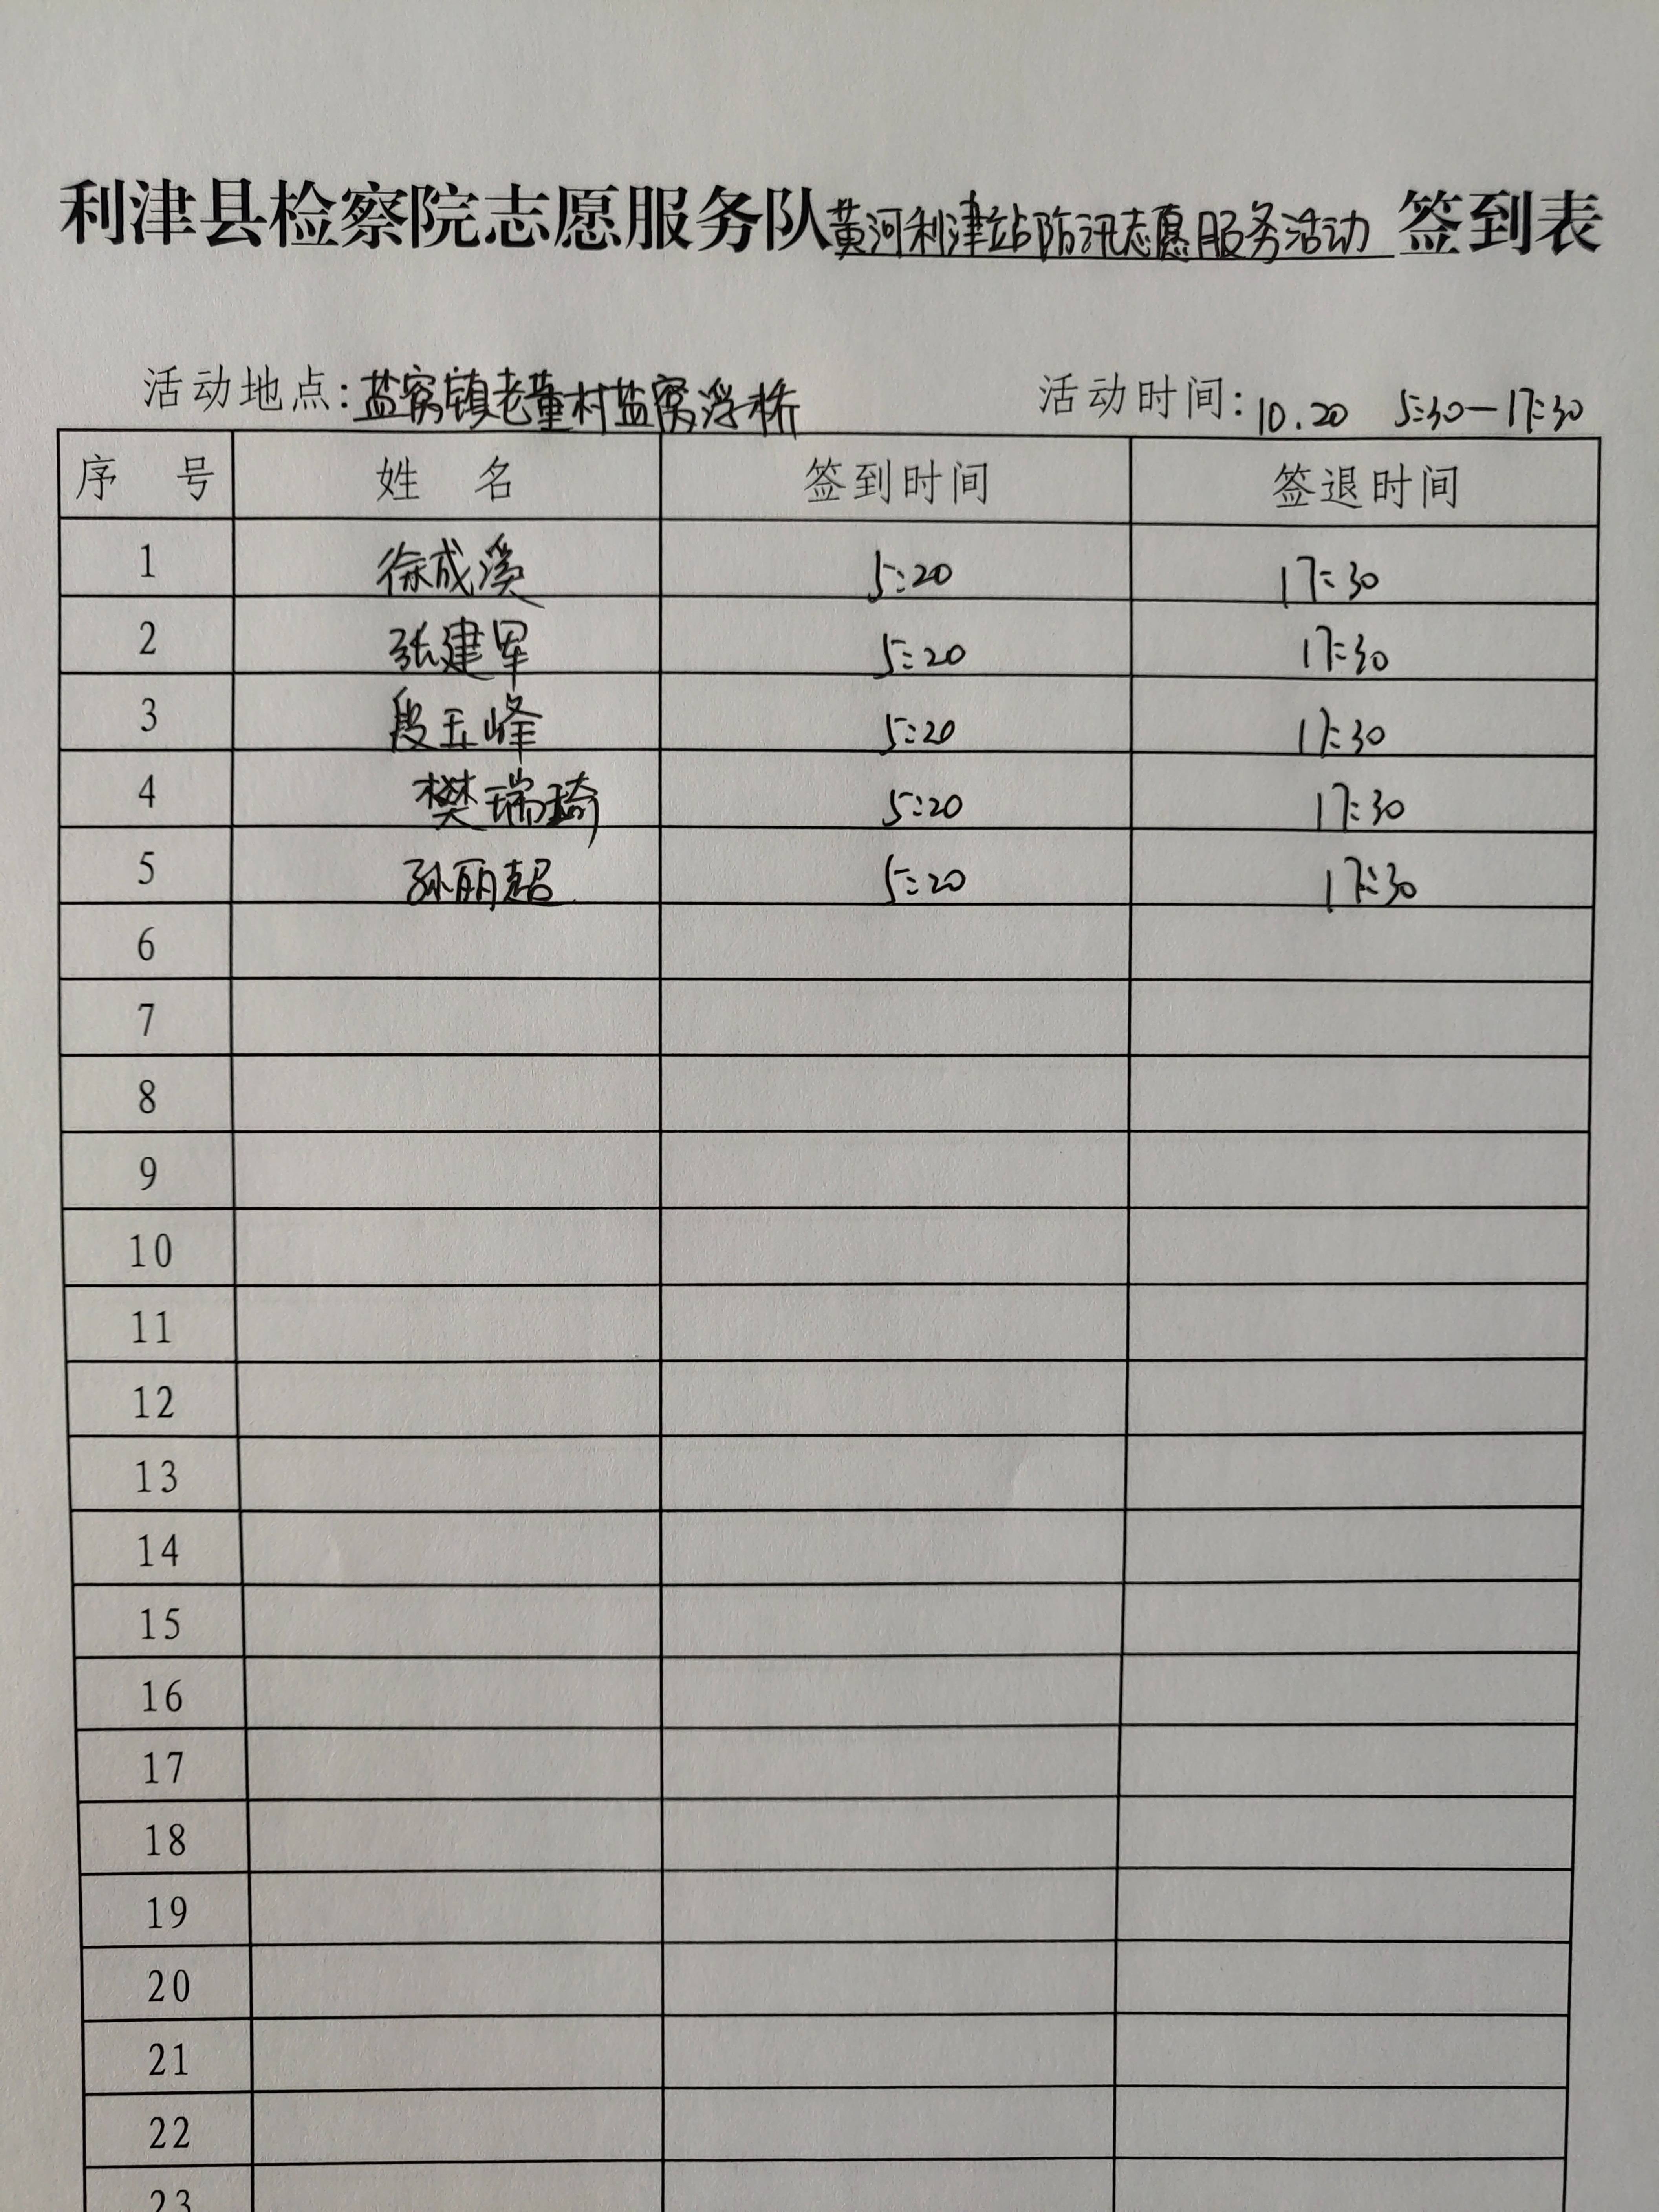 利津县检察院志愿服务队黄河利津站防汛志愿服务活动 签到表
活动地点:盐窝镇老董村盐窝浮桥 活动时间:10.20 5:30—17:30
序 号 姓 名 签到时间 签退时间
1 徐成溪 5:20 17:30
2 张建军 5:20 17:30
3 段玉峰 5:20 17:30
4 樊瑞琦 5:20 17:30
5 孙丽超 5:20 17:30
6
7
8
9
10
11
12
13
14
15
16
17
18
19
20
21
22
23